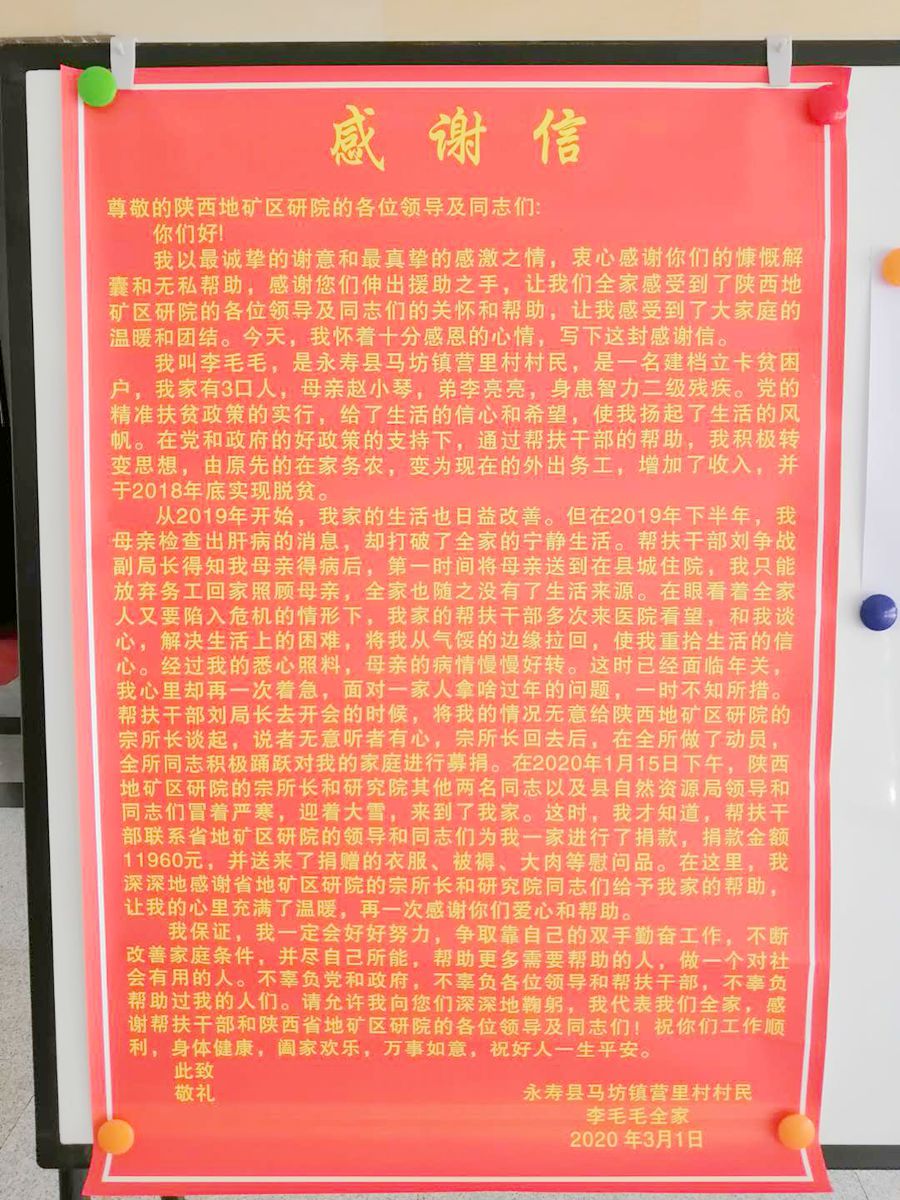 感谢信
尊敬的陕西地矿区研院的各位领导及同志们:
你们好!
我以最诚挚的谢意和最真挚的感激之情，衷心感谢你们的慷慨解
囊和无私帮助，感谢您们伸出援助之手，让我们全家感受到了陕西地
矿区研院的各位领导及同志们的关怀和帮助，让我感受到了大家庭的
温暖和团结。今天，我怀着十分感恩的心情，写下这封感谢信。
我叫李毛毛，是永寿县马坊镇营里村村民，是一名建档立卡贫困
户，我家有3口人，母亲赵小琴，弟李亮亮，身患智力二级残疾。党的
精准扶贫政策的实行，给了生活的信心和希望，使我扬起了生活的风
帆。在党和政府的好政策的支持下，通过帮扶干部的帮助，我积极转
变思想，由原先的在家务农，变为现在的外出务工，增加了收入，并
于2018年底实现脱贫。
从2019年开始，我家的生活也日益改善。但在2019年下半年，我
母亲检查出肝病的消息，却打破了全家的宁静生活。帮扶干部刘争战
副局长得知我母亲得病后，第一时间将母亲送到在县城住院，我只能
放弃务工回家照顾母亲，全家也随之没有了生活来源。在眼看着全家
人又要陷入危机的情形下，我家的帮扶干部多次来医院看望，和我谈
心，解决生活上的困难，将我从气馁的边缘拉回，使我重拾生活的信
心。经过我的悉心照料，母亲的病情慢慢好转。这时已经面临年关，
我心里却再一次着急，面对一家人拿啥过年的问题，一时不知所措。
帮扶干部刘局长去开会的时候，将我的情况无意给陕西地矿区研院的
宗所长谈起，说者无意听者有心，宗所长回去后，在全所做了动员，
全所同志积极踊跃对我的家庭进行募捐。在2020年1月15日下午，陕西
地矿区研院的宗所长和研究院其他两名同志以及县自然资源局领导和
同志们冒着严寒，迎着大雪，来到了我家。这时，我才知道，帮扶干
部联系省地矿区研院的领导和同志们为我一家进行了捐款，捐款金额
11960元，并送来了捐赠的衣服、被褥、大肉等慰问品。在这里，我
深深地感谢省地矿区研院的宗所长和研究院同志们给予我家的帮助，
让我的心里充满了温暖，再一次感谢你们爱心和帮助。
我保证，我一定会好好努力，争取靠自己的双手勤奋工作，不断
改善家庭条件，并尽自己所能，帮助更多需要帮助的人，做一个对社
会有用的人。不辜负党和政府，不辜负各位领导和帮扶干部，不辜负
帮助过我的人们。请允许我向您们深深地鞠躬，我代表我们全家，感
谢帮扶干部和陕西省地矿区研院的各位领导及同志们！祝你们工作顺
利，身体健康，阖家欢乐，万事如意，祝好人一生平安。
此致
敬礼
永寿县马坊镇营里村村民
李毛毛全家
2020 年3月1日